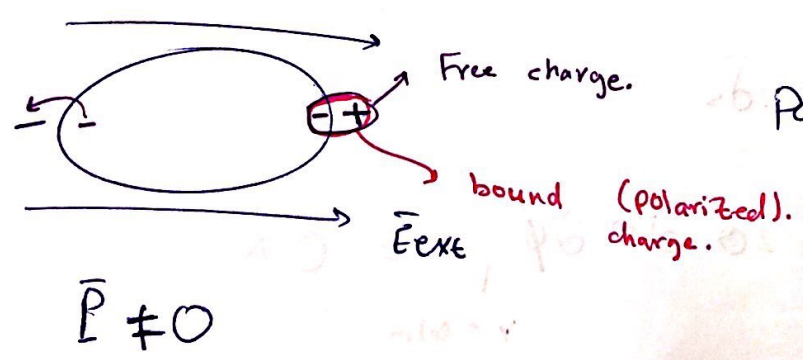 Free charge.
P
- -
- +
bound (polarized).
charge.
Ēext
P̄ ≠ 0